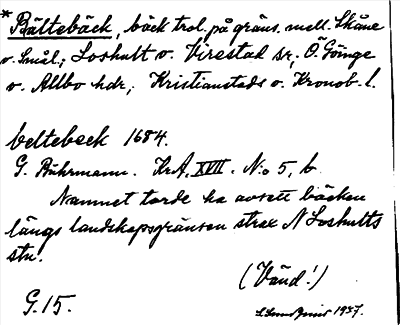 * Bältebäck, bäck trol. på gräns. mell. Skåne
o. Smål.; Loshult o. Virestad sr, Ö. Göinge
o. Allbo hdr; Kristianstads o. Kronob. l.
beltebeck 1684.
G. Buhrmann. KrA, XVII. No 5, b.
Namnet torde ha avsett bäcken
längs landskapsgränsen strax N Loshults
stn.
(Vänd!)
G. 15. 1937.